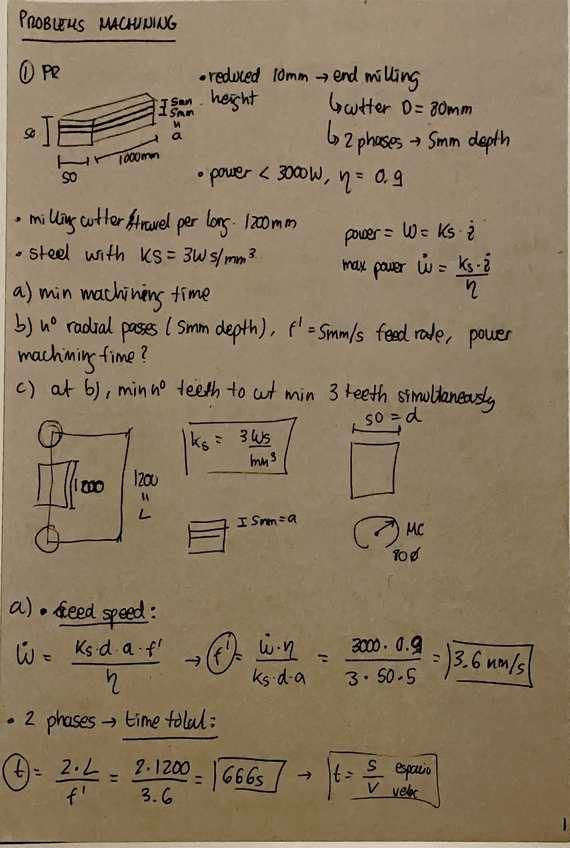 PROBLEMS MACHINING
① PR
• reduced 10mm → end milling
height
↳ cutter D = 80mm
↳ 2 phases → 5mm depth
50
5mm
5mm
"
a
50
1000mm
• power < 3000W, η = 0.9
• milling cutter travel per long. 1200mm
• steel with KS = 3Ws/mm³
power = W = Ks · ż
max power Ẇ = Ks·ż / η
a) min machining time
b) nº radial passes (5mm depth), f' = 5mm/s feed rate, power
machining time?
c) at b), min nº teeth to cut min 3 teeth simultaneously
1000
1200
"
L
ks = 3Ws / mm³
50 = d
I 5mm=a
MC
80ø
a) • feed speed:
Ẇ = Ks·d·a·f' / η → f' = Ẇ·η / ks·d·a = 3000·0.9 / 3·50·5 = 3.6 mm/s
• 2 phases → time total:
t = 2·L / f' = 2·1200 / 3.6 = 666s → t = s / v espacio
veloc
1